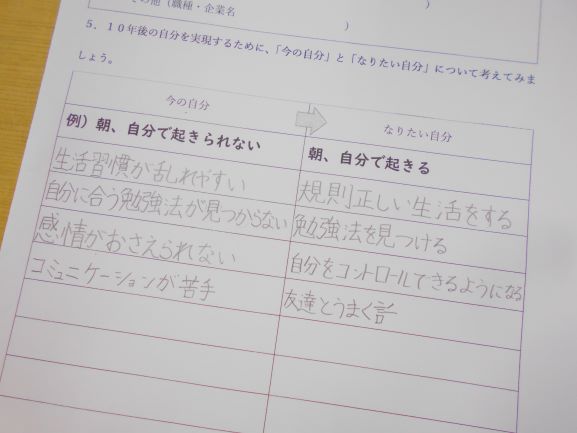 の他（職種・企業名
）
）
５．１０年後の自分を実現するために、「今の自分」と「なりたい自分」について考えてみま
しょう。
今の自分
なりたい自分
例）朝、自分で起きられない
朝、自分で起きる
生活習慣が乱れやすい
規則正しい生活をする
自分に合う勉強法が見つからない
勉強法を見つける
感情がおさえられない
自分をコントロールできるようになる
コミュニケーションが苦手
友達とうまく